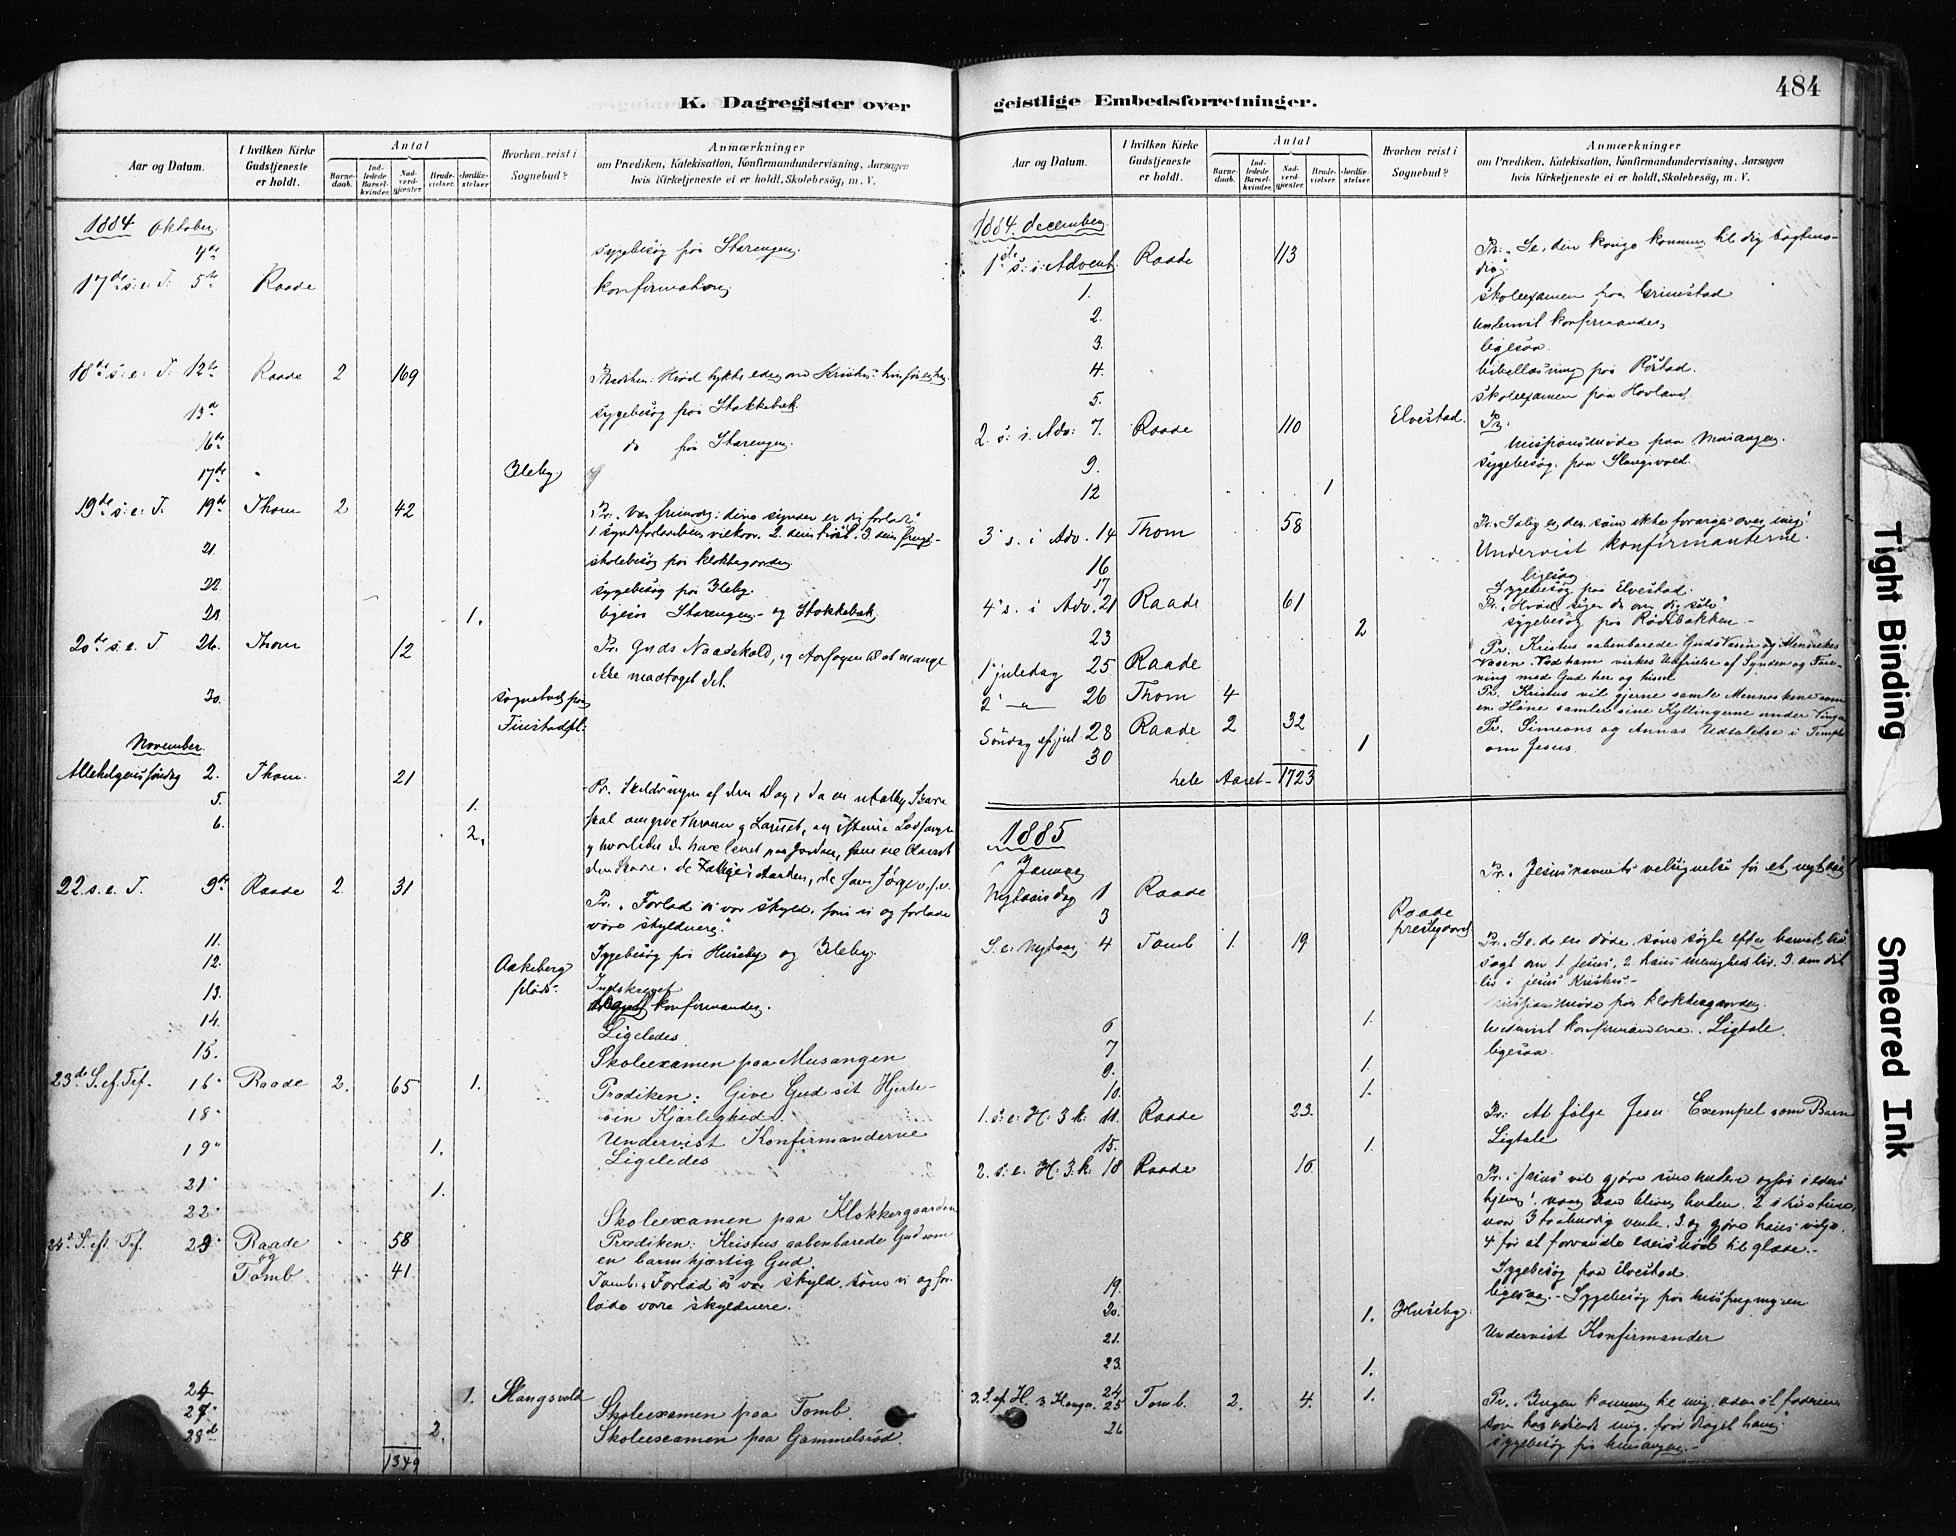 484
K. Dagregister over geistlige Embedsforretninger.
Aar og Datum.
I hvilken Kirke Gudstjeneste er holdt.
Antal
Barnedaab.
Indledede Barselkvinder.
Nadverdgjester.
Brudevielser.
Jordfæstelser.
Hvorhen reist i Sognebud?
Anmærkninger
om Prædiken, Katekisation, Konfirmandundervisning, Aarsagen
hvis Kirketjeneste ei er holdt, Skolebesøg, m. V.
1884 Oktober
4de sygebesøg paa Starengen.
17de s. e. T. 5te Raade Konfirmation
18de s. e. T. 12te Raade 2 169 Prædiken: Hvad tykkes eder om Kristus
13de sygebesøg paa Stokkebæk.
16de do paa Starengen.
17de Kleby
19de s. e. T. 19de Thom 2 42 Pr. Vær frimodig: dine synder er dig forladt
1 syndsforladelsens vilkaar. 2. dens trøst. 3. dens frugt
21. skolebesøg paa klokkergaarden
22. sygebesøg paa Kleby.
1. ligesaa Starengen og Stokkebæk
20de s. e. T 26. Thom 12 Pr. Guds Naadekald, og Aarsagen til at mange
ikke modtaget det.
30. sognebud paa
Finstadpl.
November
Allehelgenssøndag 2. Thom. 21 Pr. Skildringen af den Dag, da en utallig Skare
5. 1.
skal omgive Thronen og Lammet,
6. 2.
og hvorledes de have levet paa Jorden,
22. s. e. T. 9de Raade 2 31 Pr. "Forlad os vor skyld, som vi og forlade
vore skyldnere."
11. Sygebesøg paa Huseby og Kleby.
12. Aakeberg
plads. Indskrevet
13. konfirmander.
14. Ligeledes
15. Skoleexamen paa Musangen
23de S. ef. Tref. 16 Raade 2. 65 1. Prædiken: Give Gud sit Hjerte
sin Kjærlighed.
18 Undervist Konfirmanderne
19 1. Ligeledes
21 1.
22 Skoleexamen paa Klokkergaarden
24de S. eft. Tref. 23 Raade 58 Prædiken: Kristus aabenbarede Gud som
og en barmhjertig Gud.
Tomb 41 Tomb: Forlad os vor skyld som vi og for-
lade vore skyldnere.
24 1. Slangsvold
27 Skoleexamen paa Tomb.
28d 2. Skoleexamen paa Gammelsrød.
1349
Aar og Datum.
I hvilken Kirke Gudstjeneste er holdt.
Antal
Barnedaab.
Indledede Barselkvinder.
Nadverdgjester.
Brudevielser.
Jordfæstelser.
Hvorhen reist i Sognebud?
Anmærkninger
om Prædiken, Katekisation, Konfirmandundervisning, Aarsagen
hvis Kirketjeneste ei er holdt, Skolebesøg, m. V.
1884. december
1ste s. i Advent. Raade 113 Pr. Se, din konge kommer til dig sagtmo-
dig.
1. skoleexamen paa Grimstad
2. Undervist konfirmander
3. ligesaa.
4. bibellæsning paa Røstad.
5. skoleexamen paa Hovland
2. s. i. Adv. 7. Raade 110 Elvestad. Pr.
missionsmøde paa Musangen.
9. sygebesøg paa Slangsvold.
12 1
3 s. i Adv. 14 Thom 58 Pr. Salig er den som ikke forarges over mig!
16 Undervist Konfirmanterne.
17 ligesaa
Sygebesøg paa Elvestad.
4 s. i Adv. 21 Raade 61 Pr. "Hvad siger du om dig selv"
23 2 sygebesøg paa Rødsbakken
1 juledag 25 Raade Pr. Kristus aabenbarede Guds Væsen og Menneskes
Væsen. Ved ham virkes Udfrielse af Synden og Fore-
ning med Gud her og hisset
2 — 26 Thom 4 Pr. Kristus vil gjerne samle Menneskene som
en Høne samler sine Kyllingerne under Vingen
Søndag ef. jul 28 Raade 2 32 Pr. Simeons og Annas Udtalelse i Templet
30 1 om Jesus.
hele Aaret 1723
1885
Januar
Nytaarsdag 1 Raade Pr. Jesus navnets velsignelse for et nyt aar
3 Raade
prestegaard
S. e. Nytaar 4 Tomb 1. 19 Pr. Se, de ere døde som søgte efter barnets liv
sagt om 1. Jesus, 2. hans menigheds liv. 3. om det
liv i Jesus Kristus.
missionsmøde paa klokkergaarden
6 1. undervist konfirmanderne. Ligtale
7 ligesaa
9. 1.
10. 1.
1. s. e. H. 3 k. 11. Raade 23. Pr. At følge Jesu Exempel som Barn
15. 1. Ligtale
2. s. e. H. 3. k. 18 Raade 16. Pr. Jesus vil gjøre sine undere ogsaa i eders
hjem,
3 taalmodig vente. 3. og gjøre hans vilje.
4 for at forvandle eders nød til glæde.
19. Sygebesøg paa Elvestad
20. 1. Huseby. ligesaa. Sygebesøg paa
21. Undervist Konfirmander
23. 1.
24 1.
3. S. ef. H. 3 Konger. 25 Tomb. 2. 4. Pr. Ingen kommer til mig, uden at faderen
26 som har udsendt mig, faar draget ham
sygebesøg paa Musangen.
Tight Binding
Smeared Ink